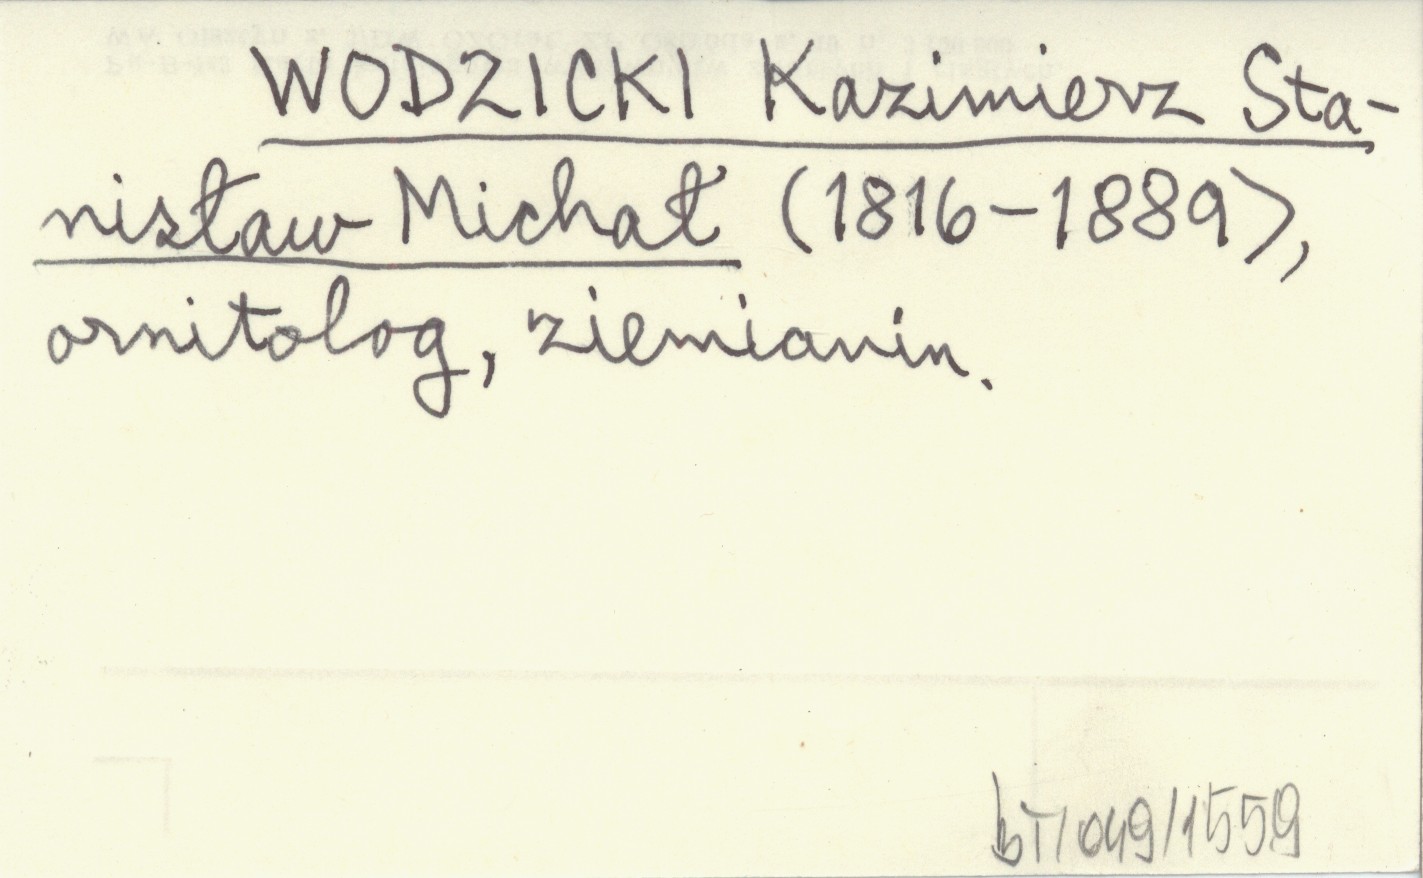 WODZICKI Kazimierz Sta-
nisław Michał (1816-1889),
ornitolog, ziemianin.
bT/049/1559